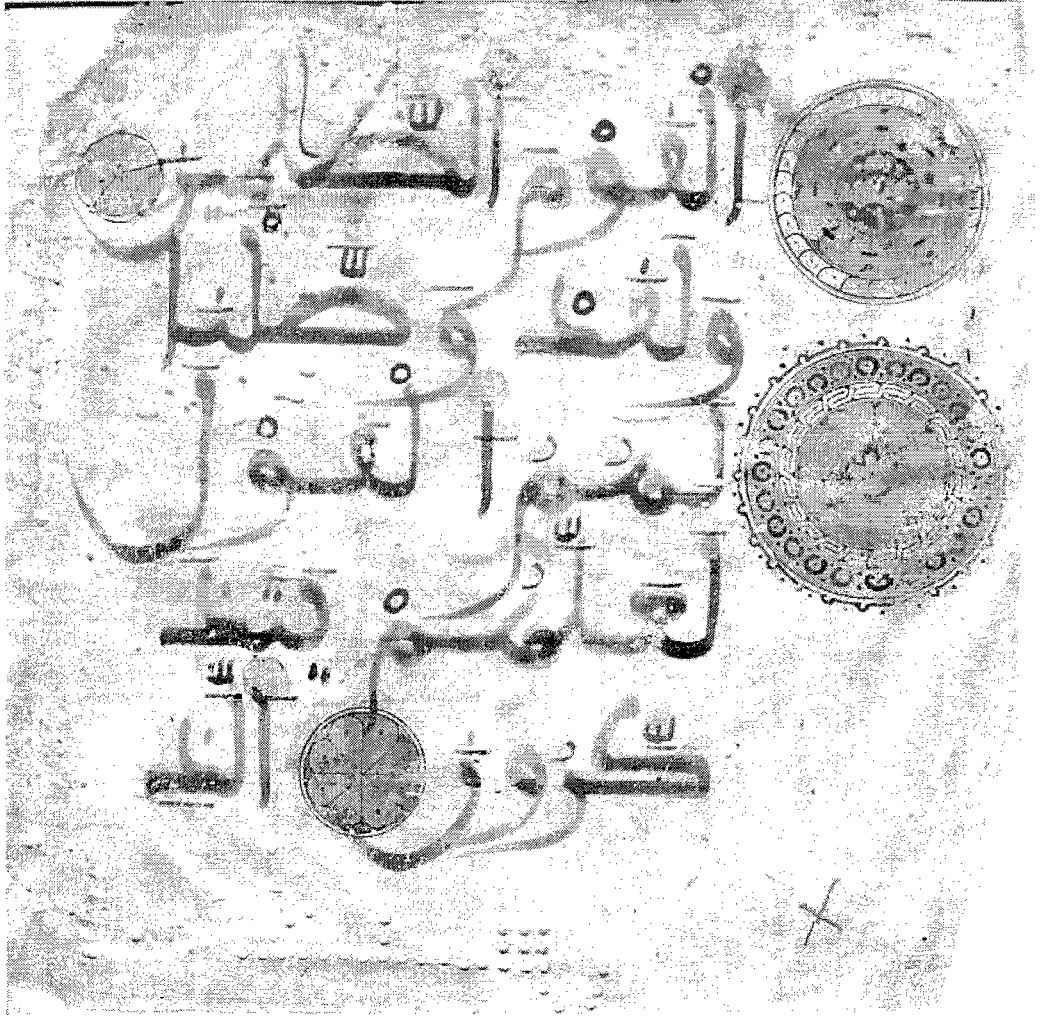 القوم الظلمين
ولقد وصلنا
لهم القول
لعلهم يتذ
كرون الذ